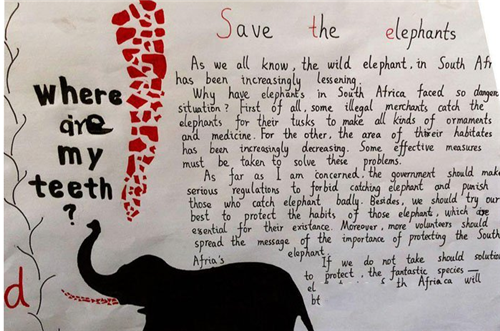 Save the elephants
where
are
my
teeth
?
d
As we all know, the wild elephant, in South Afr
has been increasingly lessening.
Why have elephants in South Africa faced so dangero
situation? First of all, some illegal merchants catch the
elephants for their tusks to make all kinds of ornaments
and medicine. For the other, the area of their habitates
has been increasingly decreasing. Some effective measures
must be taken to solve these problems.
As far as I am concerned, the government should make
serious regulations to forbid catching elephant and punish
those who catch elephant badly. Besides, we should try our
best to protect the habits of those elephant, which are
esential for their existance. Moreover, more volunteers should
spread the message of the importance of protecting the South
Afria's elephant
If we do not take should solution
to protect the fantastic species —
el th Africa will
bt